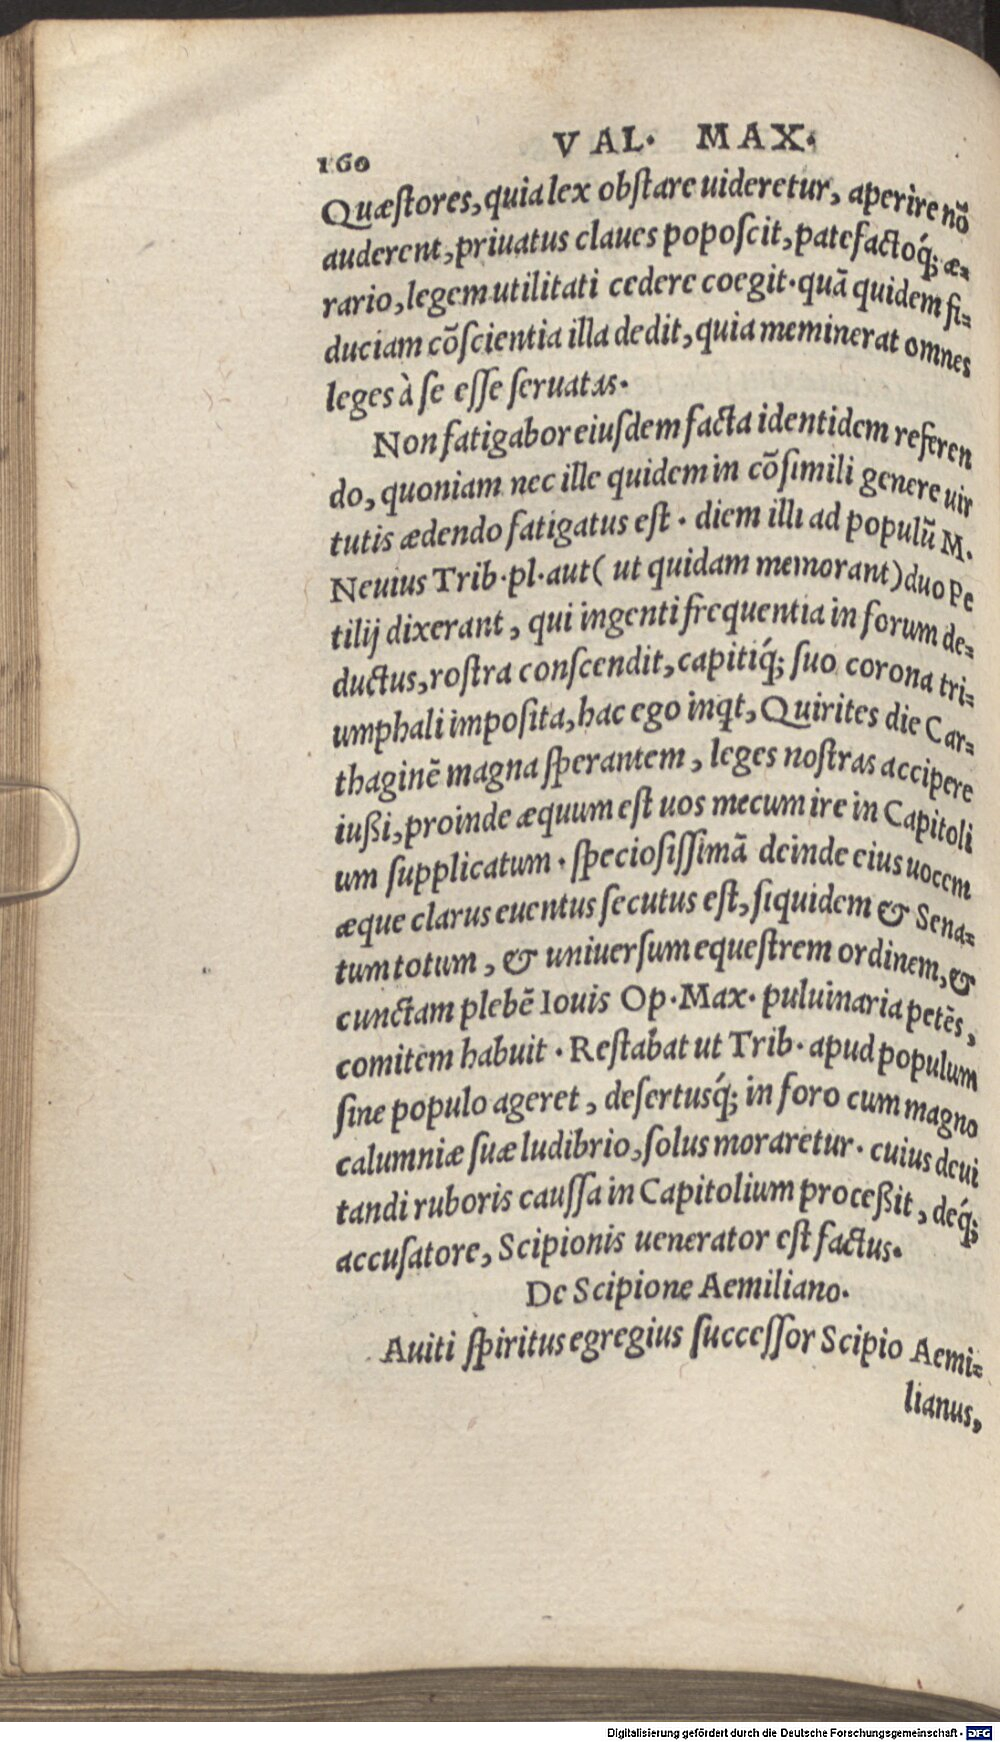 160
VAL. MAX.
Quæstores, quia lex obstare uideretur, aperire nõ
auderent, priuatus claues poposcit, patefactoq́; æ-
rario, legem utilitati cedere coegit. quã quidem fi-
duciam cõscientia illa dedit, quia meminerat omnes
leges à se esse seruatas.
Non fatigabor eiusdem facta identidem referen
do, quoniam nec ille quidem in cõsimili genere uir
tutis ædendo fatigatus est. diem illi ad populũ M.
Neuius Trib. pl. aut (ut quidam memorant) duo Pe
tilij dixerant, qui ingenti frequentia in forum de-
ductus, rostra conscendit, capitiq́; suo corona tri-
umphali imposita, hac ego inqt, Quirites die Car-
thaginẽ magna sperantem, leges nostras accipere
iußi, proinde æquum est uos mecum ire in Capitoli
um supplicatum. speciosissimã deinde eius uocem
æque clarus euentus secutus est, siquidem & Sena-
tum totum, & uniuersum equestrem ordinem, &
cunctam plebẽ Iouis Op. Max. puluinaria petẽs,
comitem habuit. Restabat ut Trib. apud populum
sine populo ageret, desertusq́; in foro cum magno
calumniæ suæ ludibrio, solus moraretur. cuius deui
tandi ruboris caussa in Capitolium proceßit, deq́;
accusatore, Scipionis uenerator est factus.
De Scipione Aemiliano.
Auiti spiritus egregius successor Scipio Aemi-
lianus,
Digitalisierung gefördert durch die Deutsche Forschungsgemeinschaft - DFG